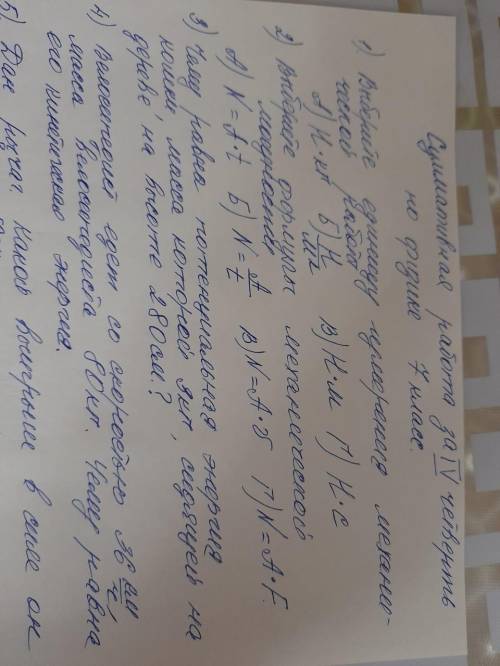 Суммативная работа за IV четверть
по физике 7 класс.
1) Выберите единицу измерения механи-
ческой работы
А) Н·кг Б) Н В) Н·м Г) Н·с
2) Выберите формулу механической
мощности
А) N = A·t Б) N = A/t В) N = A·S Г) N = A·F.
3) Чему равна потенциальная энергия
кошки, масса которой 3кг, сидящей на
дереве на высоте 280см.?
4) Велосипедист едет со скоростью 36 км/ч,
масса велосипедиста 80кг. Чему равна
его кинетическая энергия.
5) Дан рычаг. Какой выигрыш в силе он